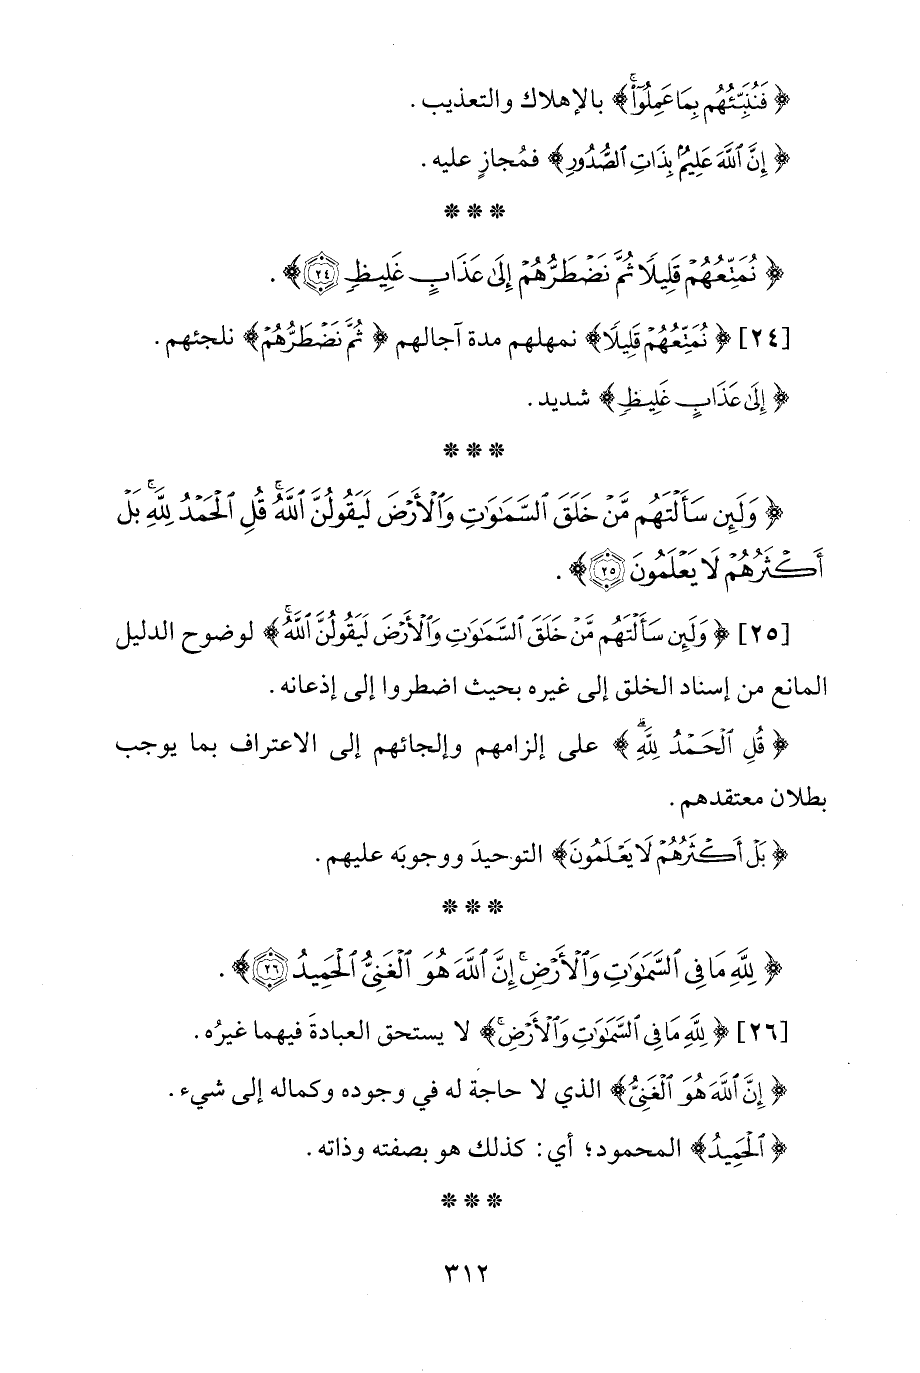 ﴿ فَنُنَبِّئُهُم بِمَا عَمِلُوٓاْۚ﴾ بالإهلاك والتعذيب.
﴿ إِنَّ ٱللَّهَ عَلِيمُۢ بِذَاتِ ٱلصُّدُورِ﴾ فمُجازٍ عليه.
* * *
﴿ نُمَتِّعُهُمْ قَلِيلًا ثُمَّ نَضْطَرُّهُمْ إِلَىٰ عَذَابٍ غَلِيظٍ ٢٤﴾.
[٢٤] ﴿ نُمَتِّعُهُمْ قَلِيلًا﴾ نمهلهم مدة آجالهم ﴿ ثُمَّ نَضْطَرُّهُمْ﴾ نلجئهم.
﴿ إِلَىٰ عَذَابٍ غَلِيظٍ﴾ شديد.
* * *
﴿ وَلَئِن سَأَلْتَهُم مَّنْ خَلَقَ ٱلسَّمَٰوَٰتِ وَٱلْأَرْضَ لَيَقُولُنَّ ٱللَّهُۚ قُلِ ٱلْحَمْدُ لِلَّهِۚ بَلْ
أَكْثَرُهُمْ لَا يَعْلَمُونَ ٢٥﴾.
[٢٥] ﴿ وَلَئِن سَأَلْتَهُم مَّنْ خَلَقَ ٱلسَّمَٰوَٰتِ وَٱلْأَرْضَ لَيَقُولُنَّ ٱللَّهُۚ﴾ لوضوح الدليل
المانع من إسناد الخلق إلى غيره بحيث اضطروا إلى إذعانه.
﴿ قُلِ ٱلْحَمْدُ لِلَّهِۗ ﴾ على إلزامهم وإلجائهم إلى الاعتراف بما يوجب
بطلان معتقدهم.
﴿ بَلْ أَكْثَرُهُمْ لَا يَعْلَمُونَ﴾ التوحيدَ ووجوبَه عليهم.
* * *
﴿ لِلَّهِ مَا فِي ٱلسَّمَٰوَٰتِ وَٱلْأَرْضِۚ إِنَّ ٱللَّهَ هُوَ ٱلْغَنِيُّ ٱلْحَمِيدُ ٢٦﴾.
[٢٦] ﴿ لِلَّهِ مَا فِي ٱلسَّمَٰوَٰتِ وَٱلْأَرْضِۚ﴾ لا يستحق العبادةَ فيهما غيرُه.
﴿ إِنَّ ٱللَّهَ هُوَ ٱلْغَنِيُّ﴾ الذي لا حاجة له في وجوده وكماله إلى شيء.
﴿ ٱلْحَمِيدُ﴾ المحمود؛ أي: كذلك هو بصفته وذاته.
* * *
٣١٢